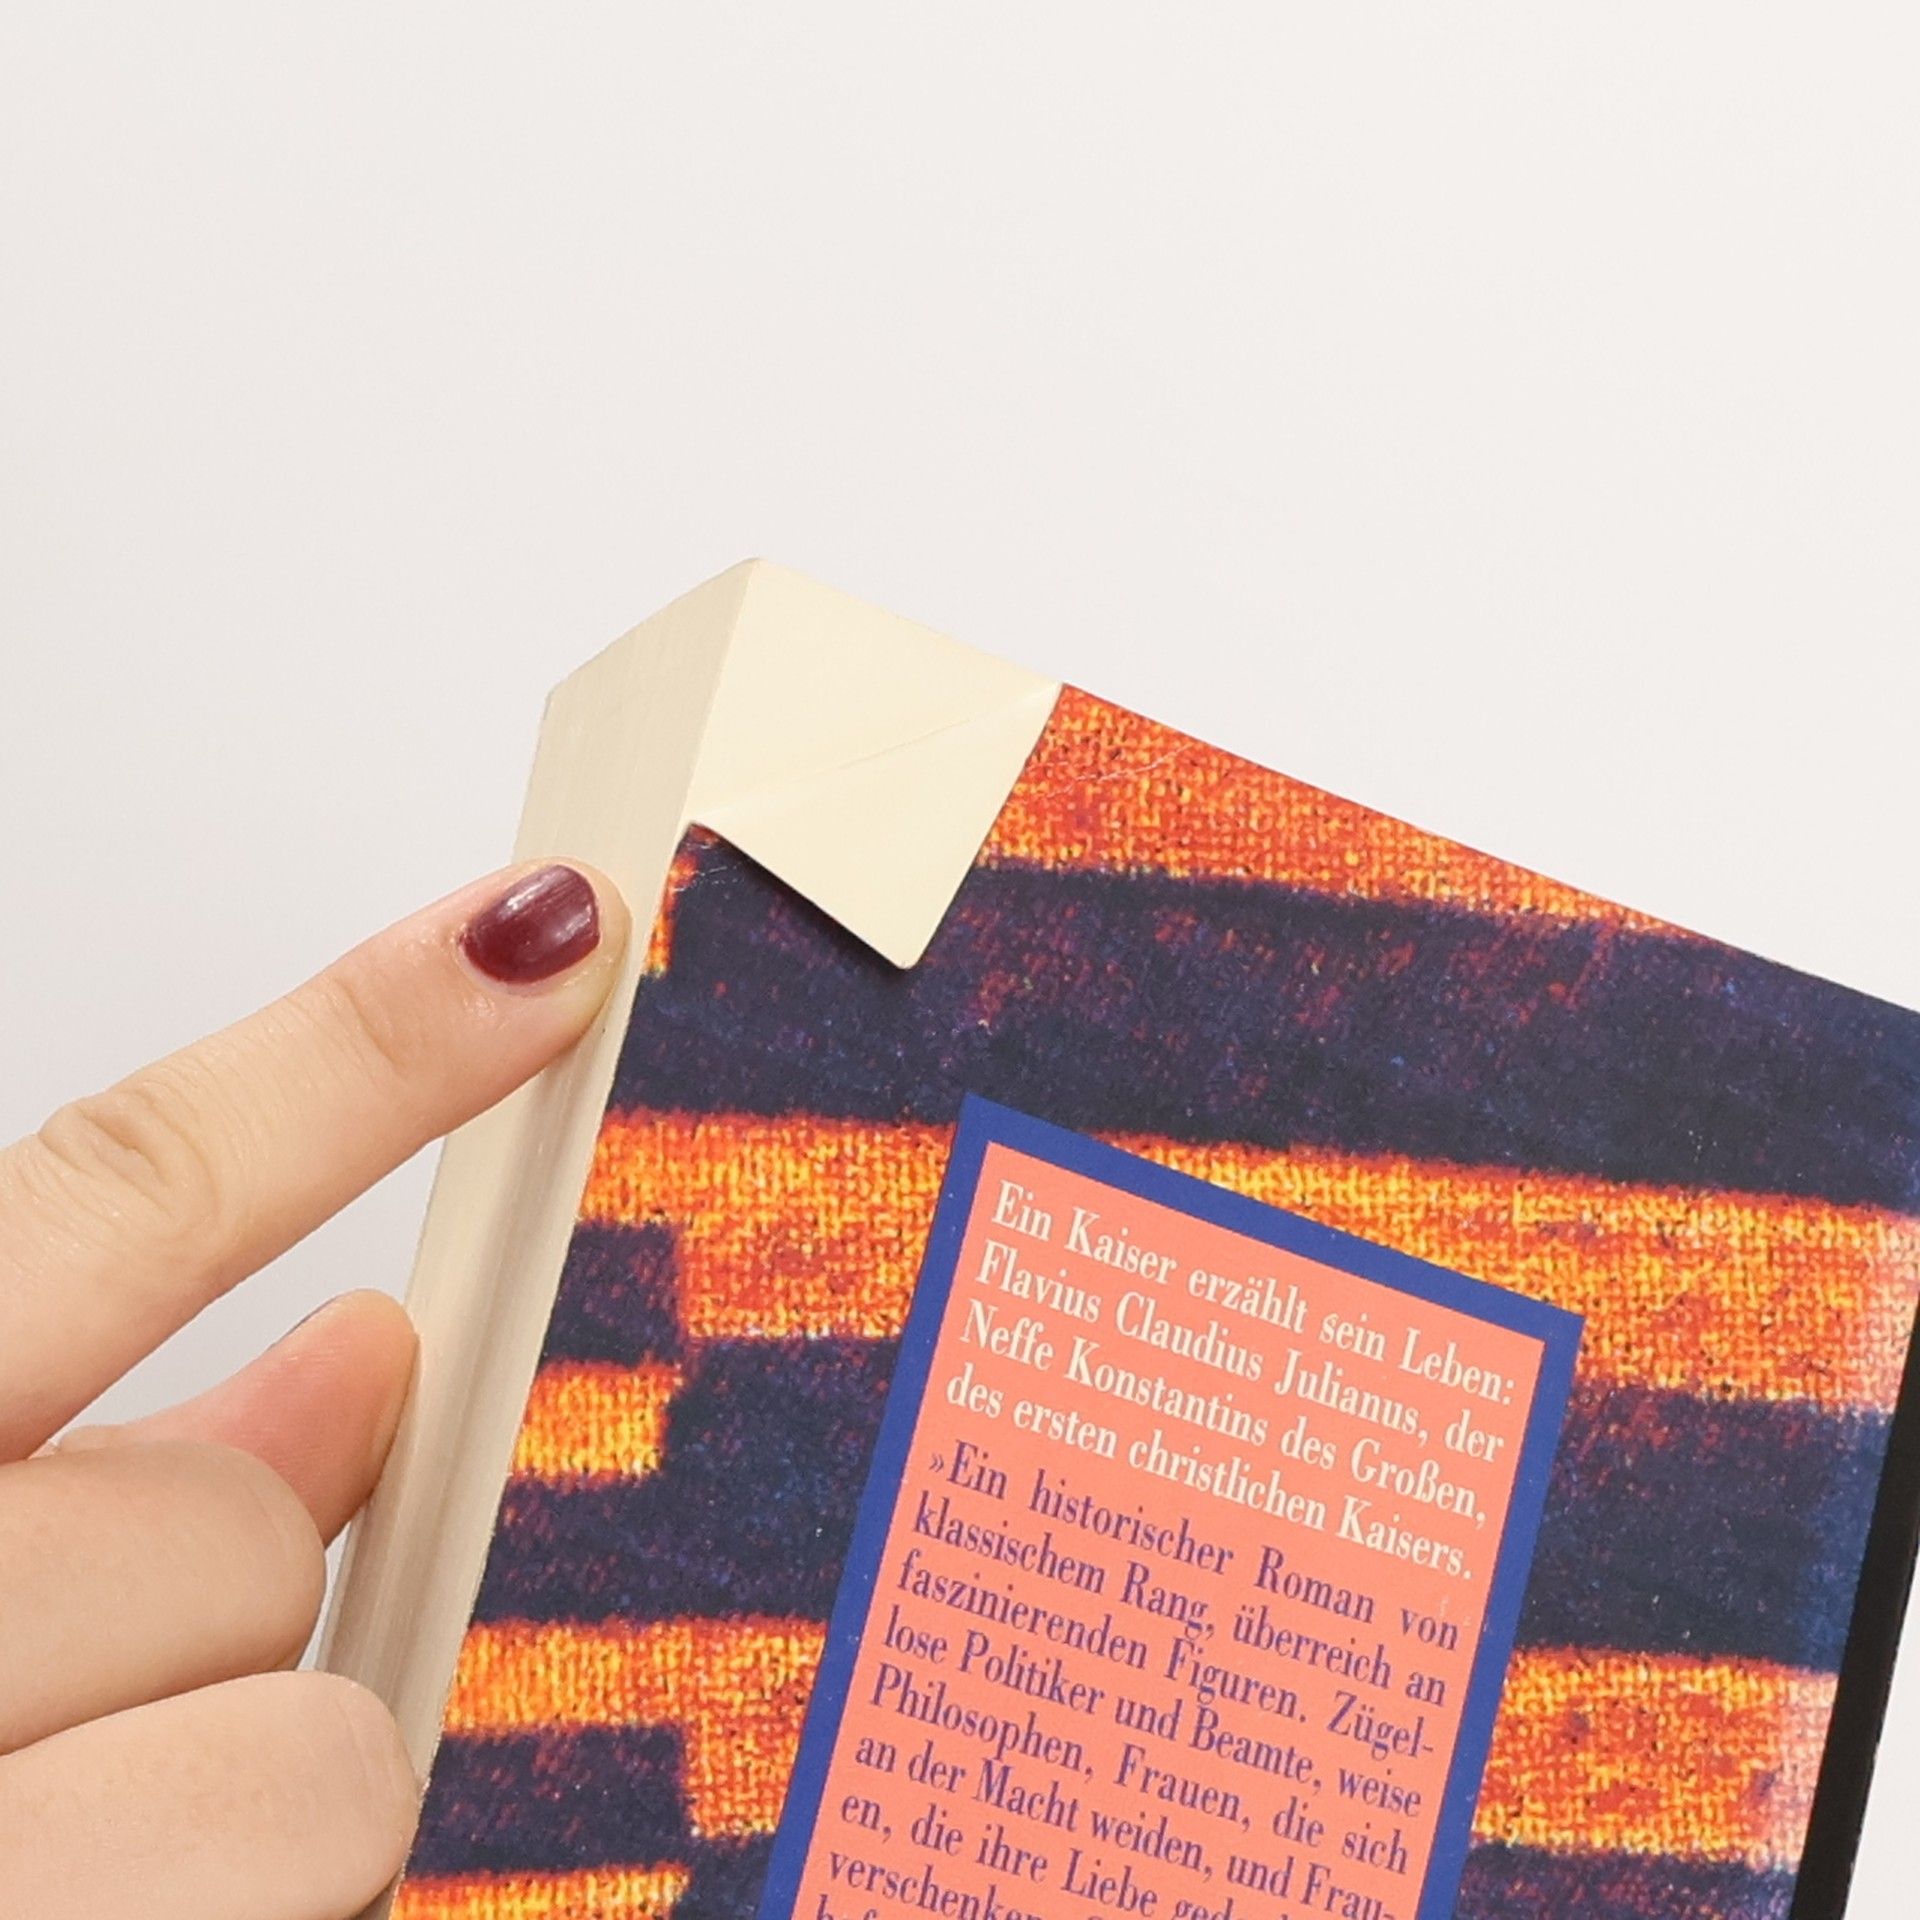 Ein Kaiser erzählt sein Leben:
Flavius Claudius Julianus, der
Neffe Konstantins des Großen,
des ersten christlichen Kaisers.
»Ein historischer Roman von
klassischem Rang, überreich an
faszinierenden Figuren. Zügel-
lose Politiker und Beamte, weise
Philosophen, Frauen, die sich
an der Macht weiden, und Frau-
en, die ihre Liebe
verschenken